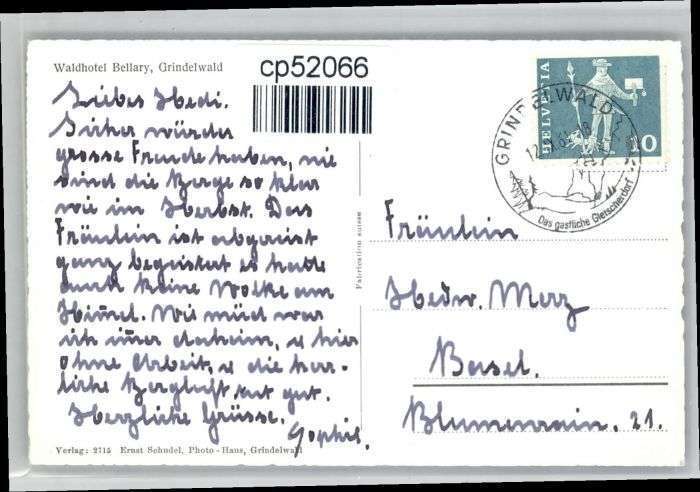 Waldhotel Bellary, Grindelwald
cp52066
Liebes Hedi.
Sicher würdes
grosse Freude haben, nie
sind die Berge so klar
wie im Herbst. Das
Fräulein ist abgereist
ganz begeistert es hatte
auch keine Wolke am
Him̄el. Wie müd war
ich im̄er daheim, u hier
ohne Arbeit, u die herr-
liche Bergluft tut gut.
Herzliche Grüsse.
Sophie.
Verlag: 2715 Ernst Schudel, Photo-Haus, Grindelwald
Fabrication suisse
HELVETIA
10
GRINDELWALD
Das gastliche Gletscherdorf
Fräulein
Hedw. Merz
Basel.
Blumenrain. 21.